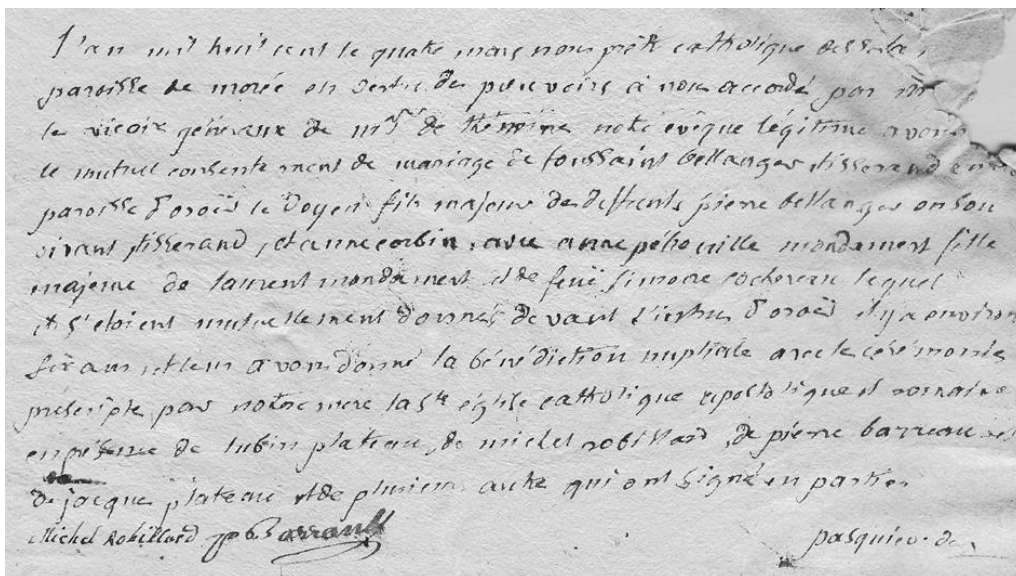 L'an mil huit cent le quatre mars nous prêtre catholique desser la
paroisse de morée en vertu des pouvoirs à nous accordé par
le vicaire généraux de mgr de thémine notre évêque légitime avons
le mutuel consentement de mariage de toussaint bellanger tisserand
paroisse d'oroüé le Doyen fils majeur de deffunts pierre bellanger en son
vivant tisserand, et anne corbin, avec anne pétronille mondament fille
majeure de laurent mondament et de feuë simone cochereau lequel
et s'étoient mutuellement donnés devant d'oroüé il y a environ
six ans et leur avons donné la bénédiction nuptiale avec le cérémonie
préscripte par notre mere la Ste église catholique apostolique et romaine
en présence de lubin plateau, de michel robillard, de pierre barreau et
de jacque plateau et de plusieurs autre qui ont signé en partie
Michel Robillard p Barrault pasquier